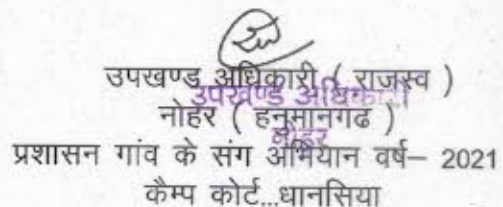 उपखण्ड अधिकारी ( राजस्व )
उपखण्ड अधिकारी
नोहर ( हनुमानगढ )
नोहर
प्रशासन गांव के संग अभियान वर्ष– 2021
कैम्प कोर्ट...धानसिया